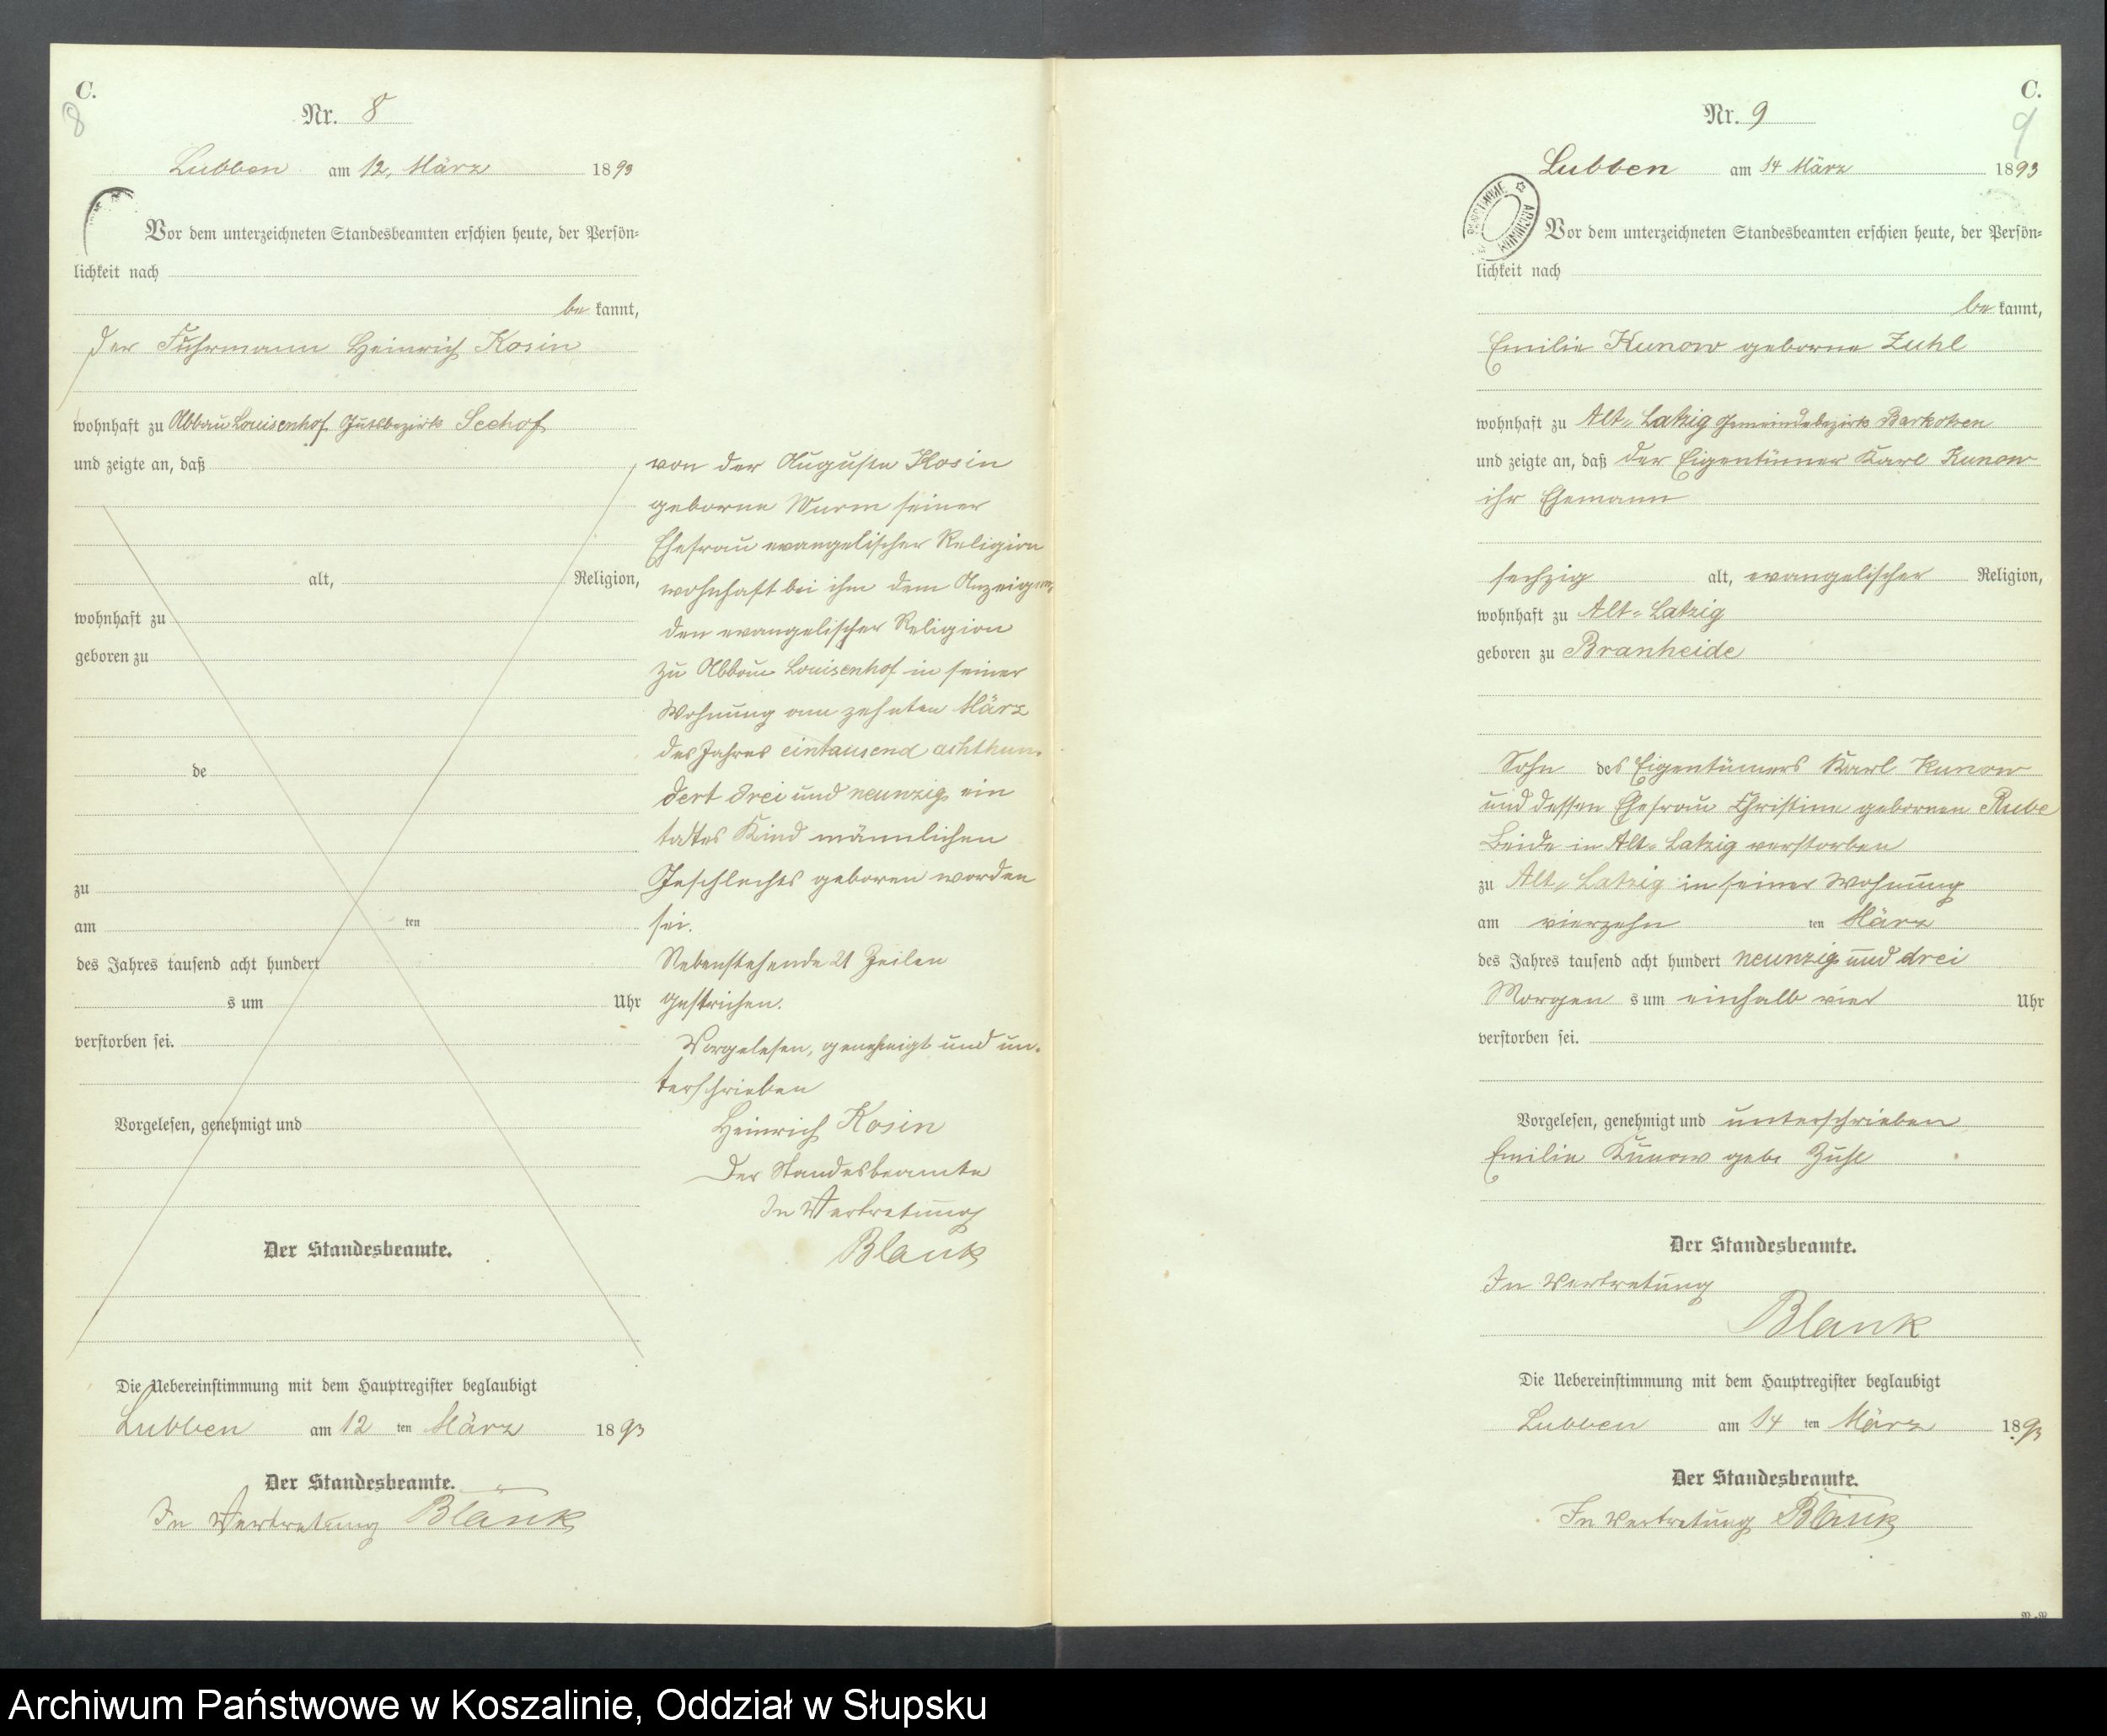 C.
8
Nr. 8
Lubben am 12. März 1893
Vor dem unterzeichneten Standesbeamten erschien heute, der Persön=
lichkeit nach
be kannt,
der Fuhrmann Heinrich Kosin
wohnhaft zu Abbau Louisenhof Gutsbezirk Seehof
und zeigte an, daß
alt, Religion,
wohnhaft zu
geboren zu
de
zu
am ten
des Jahres tausend acht hundert
s um Uhr
verstorben sei.
Vorgelesen, genehmigt und
Der Standesbeamte.
von der Auguste Kosin
geborne Wurm seiner
Ehefrau evangelischer Religion
wohnhaft bei ihm dem Anzeigen=
den evangelischer Religion
zu Abbau Louisenhof in seiner
Wohnung am zehnten März
des Jahres eintausend achthun=
dert drei und neunzig ein
todtes Kind männlichen
Geschlechts geboren worden
sei.
Nebenstehende 21 Zeilen
gestrichen.
Vorgelesen, genehmigt und un=
terschrieben
Heinrich Kosin
Der Standesbeamte
In Vertretung
Blank
Die Uebereinstimmung mit dem Hauptregister beglaubigt
Lubben am 12 ten März 1893
Der Standesbeamte.
In Vertretung Blank
C.
9
Nr. 9
Lubben am 14 März 1893
ARCHIWUM
Vor dem unterzeichneten Standesbeamten erschien heute, der Persön=
lichkeit nach
be kannt,
Emilie Kunow geborne Zuhl
wohnhaft zu Alt=Latzig Gemeindebezirk Barkotzen
und zeigte an, daß der Eigentümer Karl Kunow
ihr Ehemann
sechzig alt, evangelischer Religion,
wohnhaft zu Alt=Latzig
geboren zu Branheide
Sohn des Eigentümers Karl Kunow
und dessen Ehefrau Christine gebornen Rube
Beide in Alt=Latzig verstorben
zu Alt=Latzig in seiner Wohnung
am vierzehn ten März
des Jahres tausend acht hundert neunzig und drei
Morgen s um einhalb vier Uhr
verstorben sei.
Vorgelesen, genehmigt und unterschrieben
Emilie Kunow gebe Zuhl
Der Standesbeamte.
In Vertretung
Blank
Die Uebereinstimmung mit dem Hauptregister beglaubigt
Lubben am 14 ten März 1893
Der Standesbeamte.
In Vertretung Blank
Archiwum Państwowe w Koszalinie, Oddział w Słupsku